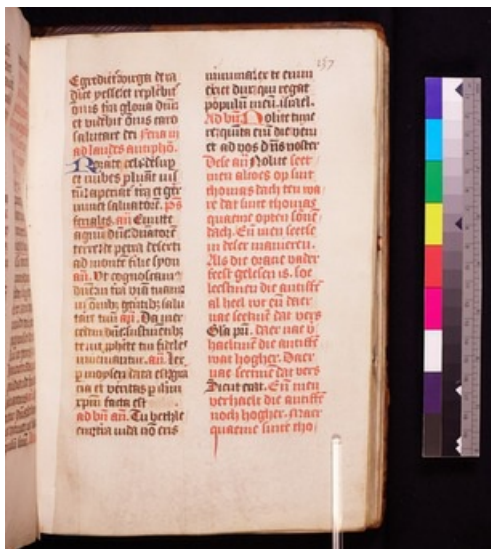 Egrediet virga de ra
dice yesse et replebit
omīs t̄ra gloria dn̄i
et videbit omīs caro
salutare dei Feria iii
ad laudes antiphō.
Rorate celi desup
et nubes pluāt ius
tū aperiat̄ t̄ra et ger
minet saluatorē. ps
feriales. an̄ Emitte
agnū dn̄e dn̄atorē
terre de petra deserti
ad montē filie syon
an̄. Vt cognoscam
dn̄e in t̄ra viā tuam
in omīb3 gentib3 salu
tare tuū an̄. Da mer
cedem dn̄e sustinentib3
te ut p̄phete tui fideles
inveniantur. an̄. Lex
p moysen data est gra
cia et veritas p ihm
xpm̄ facta est
ad bn̄ an̄. Tu bethle
em t̄ra iuda nō eris
137
minima ex te enim
exiet dux qui regat
populū meū israel.
Ad bn̄ Nolite time
re quīta em̄ die veni
et ad vos dn̄s noster
Dese an̄ Nolite seet
men alwes op sint
thomas dach ten wa
re dat sint thomas
quaeme opten sonē
dach. En̄ men seetse
in deser manieren.
Als die oracie vander
feest gelesen is. soe
leestmen die antiffē
al heel wt en̄ daer
nae seetmē dat vers
Gl̄a pr̄i. daer nae v̄
haeltmē die antiffē
wat hogher. Daer
nae seetmē dat vers
Sicut erat. En̄ men
verhaelt die antiffē
noch hogher. Maer
quaeme sinte tho